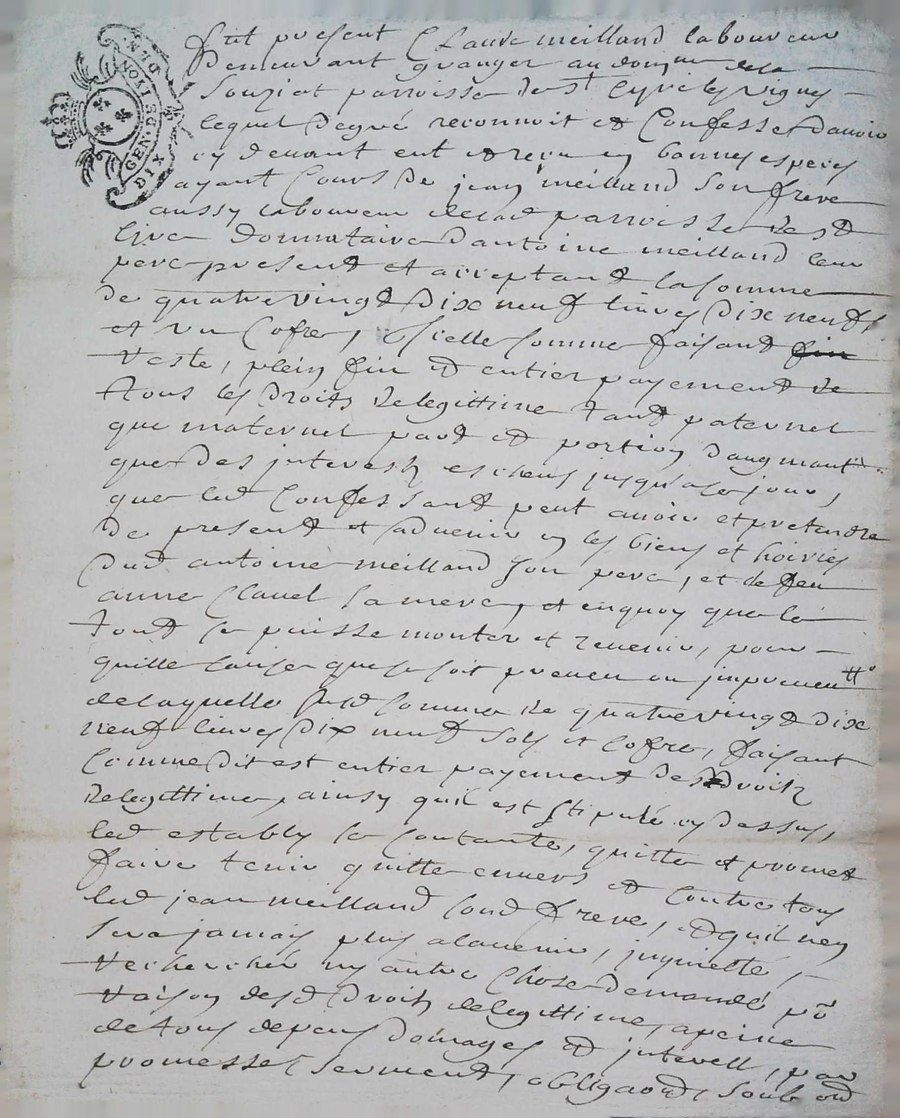 GEN. DE LYON
DIX DEN.
SIX
fut present Claude meilland laboureur
demeurant granger au domaine de la
Souziat parroisse de st Cyre les vignes
lequel de gré reconnoit et Confesse d'avoir
cy devant eut et receu en bonnes especes
ayant Cours de jean meilland son frere
aussy laboureur de lad parroisse de st
Cire donnataire d'antoine meilland leur
pere present et acceptant la somme
de quatrevingt dix neuf livres dix neuf s
et un Cofre, Icelle somme faisant fin
reste, plein fin et entier payement de
tous les droits de legittime tant paternel
que maternel part et portion d'augmant
que des interestz escheus jusqu'a ce jour,
que led Confessant peut avoir et pretendre
de present et advenir en les biens et hoiries
dud antoine meilland son pere, et de feu
anne Clavel sa mere, et en quoy que le
tout se puisse monter et revenir, pour
quille cause que se soit preveu ou impreveu
de laquelle susd somme de quatrevingt dix
neuf livres dix neuf sols et Cofre, faisant
Comme dit est entier payement desd droitz
de legittime, ainsy quil est stipulé cy dessus,
led estably se Contante, quitte et promet
faire tenir quitte envers et Contre tous
led jean meilland sond frere, et quil ney
sera jamais plus a lavenir, inquietté,
recherché ny autre Chose demandé po
raison desd droitz de legittime, a peine
de tous depens domages et interest, par
promesse, serment, obligaon, soub on